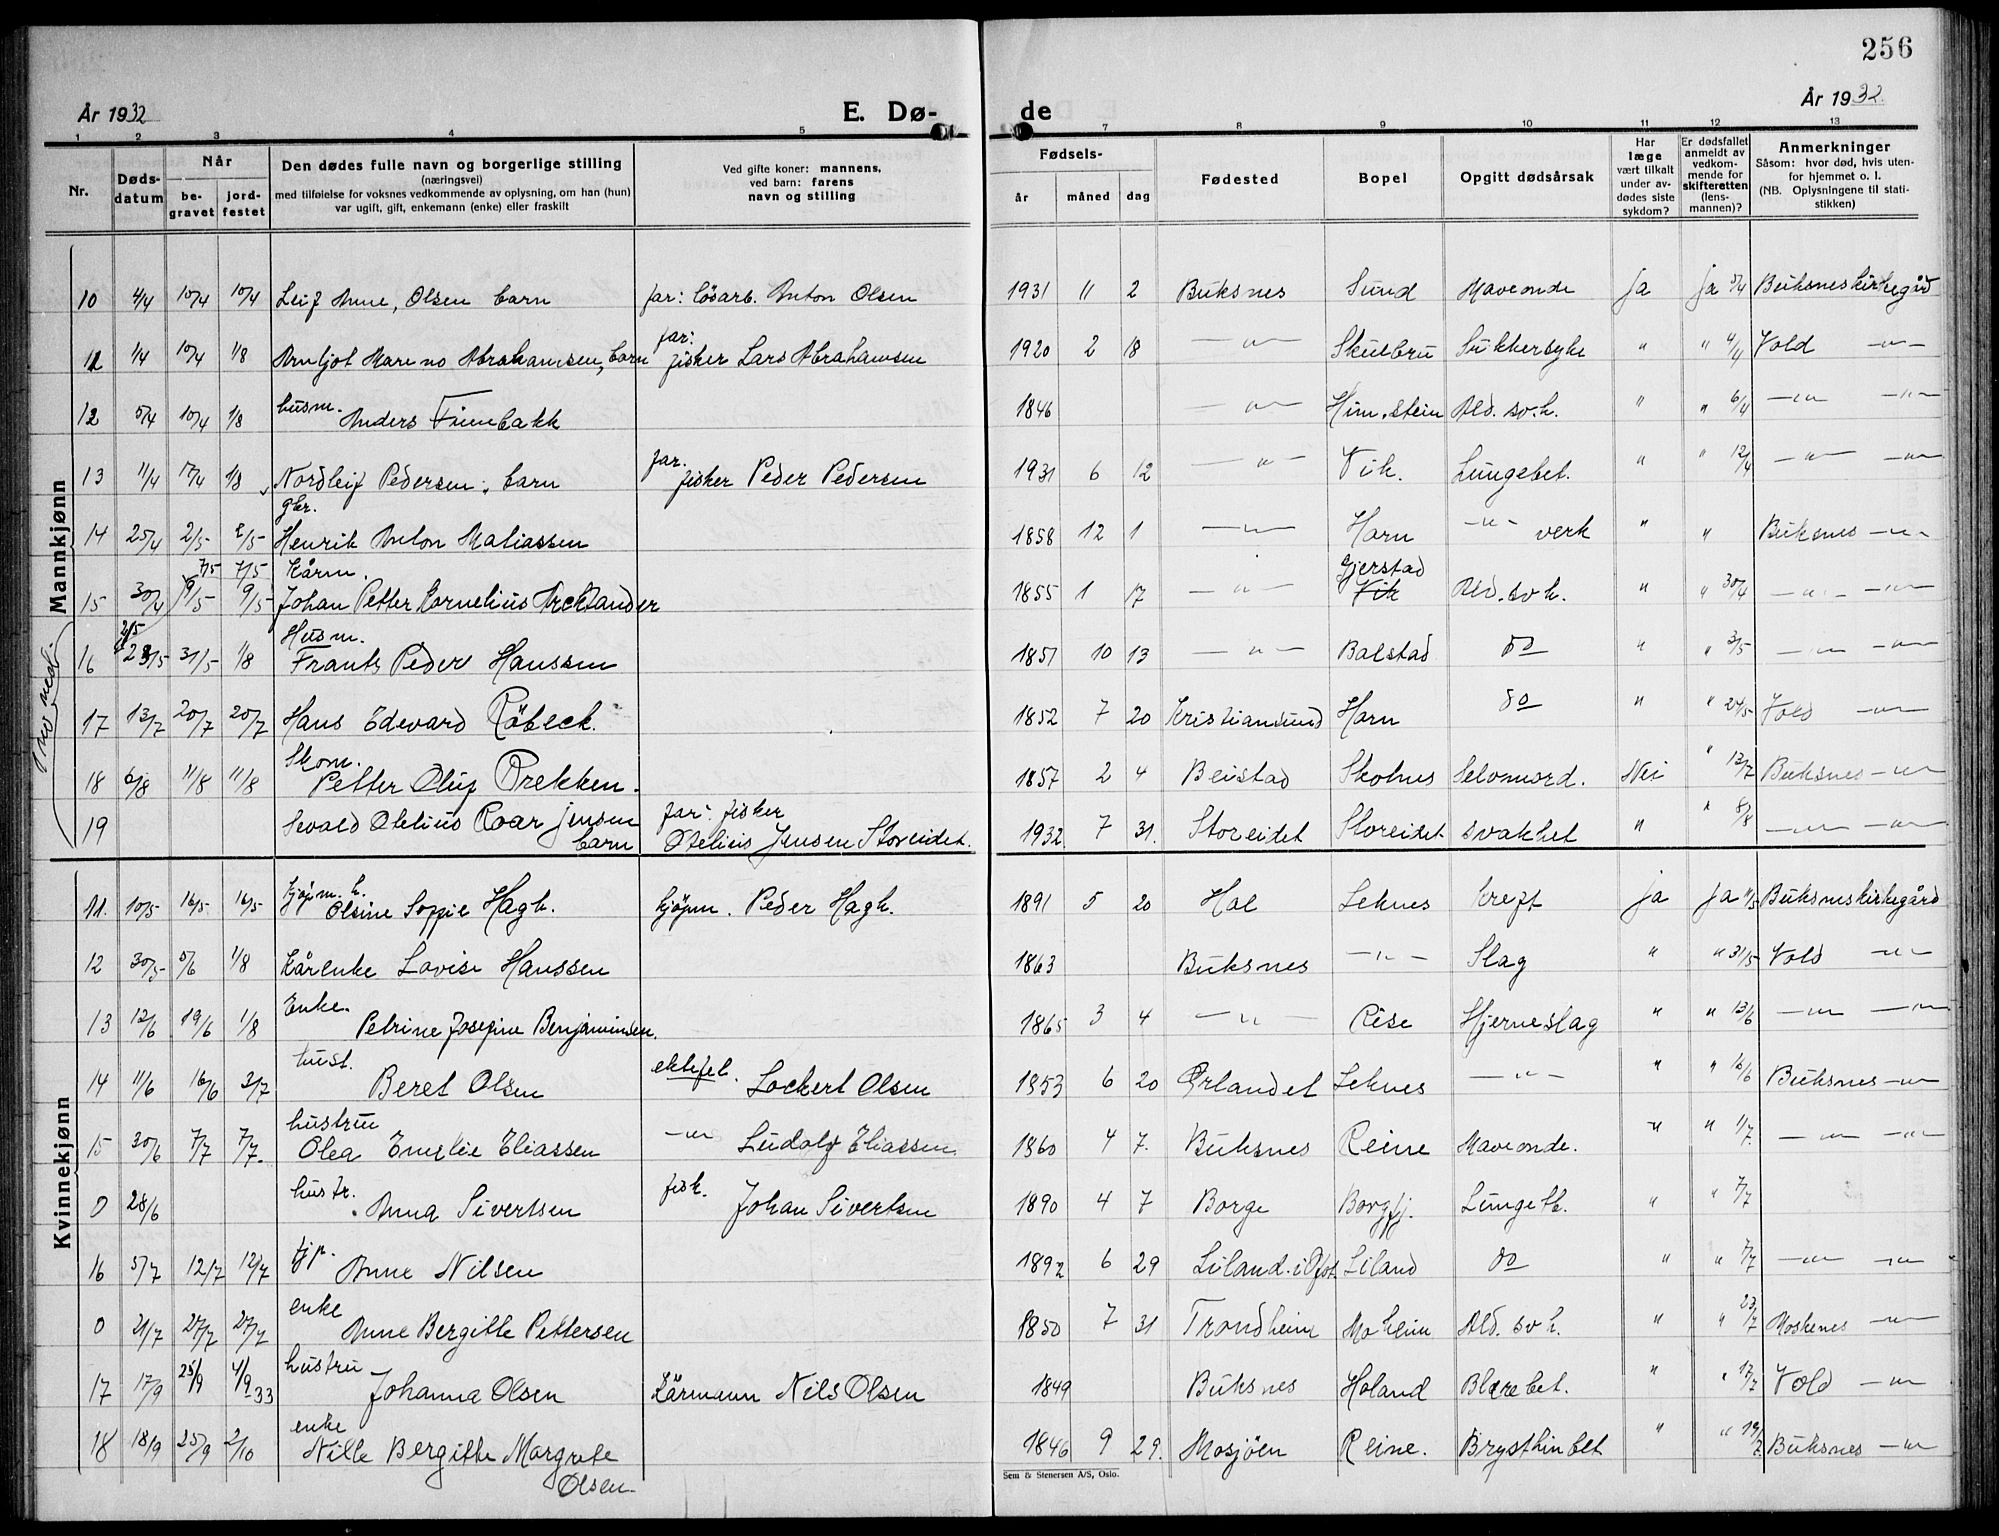 256
År 1932 E. Dø- de År 1932
1 2 3 4 5 7 8 9 10 11 12 13
Nr. Døds-datum Når be-gravet jord-festet Den dødes fulle navn og borgerlige stilling (næringsvei) med tilføielse for voksnes vedkommende av oplysning, om han (hun) var ugift, gift, enkemann (enke) eller fraskilt Ved gifte koner: mannens, ved barn: farens navn og stilling Fødsels- år måned dag Fødested Bopel Opgitt dødsårsak Har læge vært tilkalt under av-dødes siste sykdom? Er dødsfallet anmeldt av vedkom-mende for skifteretten (lens-mannen)? Anmerkninger Såsom: hvor død, hvis uten-for hjemmet o. l. (NB. Oplysningene til stati-stikken)
Mannkjønn
10 4/4 10/4 10/4 Leif Arne, Olsen barn far: løsarb. Anton Olsen 1931 11 2 Buksnes Sund Maveonde ja ja 5/4 Buksnes kirkegård
11 1/4 10/4 1/8 Arnljot Mareno Abrahamsen, barn far: fisker Lars Abrahamsen 1920 2 18 —"— Skulbru Sukkersyke " " 4/4 Vold —"—
12 5/4 10/4 1/8 husm. Anders Finnbakk 1846 —"— Him.stein Ald. sv.h. " " 6/4 —"— —"—
13 11/4 17/4 1/8 Nordleif Pedersen, barn far. fisker Peder Pedersen 1931 6 12 —"— Vik. Lungebet. " " 12/4 —"— —"—
14 25/4 2/5 2/5 gbr. Henrik Anton Matiassen 1858 12 1 —"— Horn —"— verk " " Buksnes —"—
15 30/4 7/5 9/5 7/5 9/5 Kårm. Johan Petter Kornelius Arctander 1855 1 17 —"— Gjerstad Vik Ald. sv h. " " 30/4 —"— —"—
16 2/5 31/5 1/8 Husm. Frants Peder Hanssen 1851 10 13 —"— Balstad do " " 3/5 —"— —"—
17 13/7 20/7 20/7 Hans Edevard Röbeck. 1852 7 20 Kristiansund Horn do " " 24/5 Vold —"—
18 6/8 11/8 11/8 Skom. Petter Oluf Brekken. 1857 2 4 Beistad Skolnes Selvmord. Nei " 13/7 Buksnes —"—
19 Sevald Otelius Roar Jensen barn far: fisker Otelius Jensen Storeidet. 1932 7 31. Storeidet Storeidet svakhet " " 8/8 —"— —"—
Kvinnekjønn
11. 10/5 16/5 16/5 kjøpm. h. Olsine Soffie Hagh. kjøpm. Peder Hagh. 1891 5 20 Hol Leknes kreft ja ja 11/5 Buksnes kirkegård
12 30/5 5/6 1/8 Kårenke Lovise Hanssen 1863 Buksnes —"— Slag " " 31/5 Vold —"—
13 12/6 19/6 1/8 Enke. Petrine Josefine Benjaminsen. 1865 3 4 —"— Rise Hjerneslag " " 13/6 —"— —"—
14 11/6 16/6 3/7 hust. Beret Olsen ektefel. Lockert Olsen 1853 6 20 Ørlandet Leknes —"— " " 16/6 Buksnes —"—
15 30/6 7/7 7/7. hustru Olea Emelie Eliassen —"— Ludolf Eliassen 1860 4 7. Buksnes Reine Maveonde. " " 1/7 —"— —"—
0 28/6 hustr. Anna Sivertsen fisk. Johan Sivertsen 1890 4 7 Borge Borgfj. Lungetb. " " 7/7
16 5/7 12/7 12/7 tjp. Anne Nilsen 1892 6 29 Liland i Ofot. Liland do " " 7/7 —"— —"—
0 21/7 27/7 27/7 enke Anne Bergitte Pettersen 1850 7 31 Trondheim Moheim Ald. sv h. " " 23/7 Moskenes —"—
17 17/9 25/9 4/9 33 hustru Johanna Olsen Kårmann Nils Olsen 1849 Buksnes Holand Blærebet. " " 17/7 Vold —"—
18 18/9 25/9 2/10 enke Nille Bergitte Margrete Olsen 1846 9 29. Mosjöen Reine. Brysthinbet " " 19/7 Buksnes —"—
Sem & Stenersen A/S, Oslo.